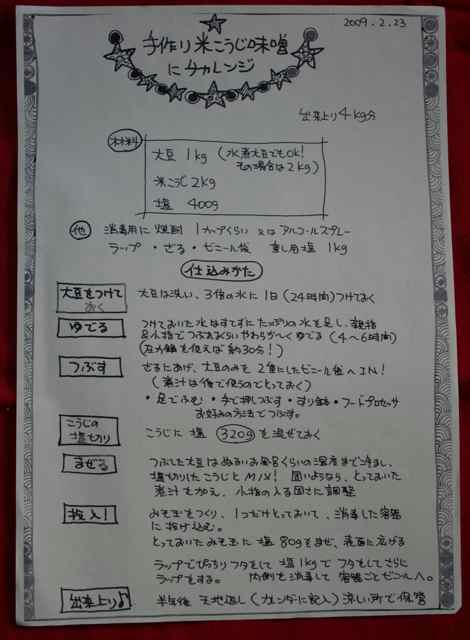 2009.2.23
手作り米こうじ味噌
にチャレンジ
出来上り4kg分
材料
大豆 1kg (水煮大豆でもOK!
その場合は2kg)
米こうじ 2kg
塩 400g
他 消毒用に 焼酎 1カップくらい 又は アルコールスプレー
ラップ ・ ざる ・ ビニール袋 重し用塩 1kg
仕込みかた
大豆をつけて
おく
大豆は洗い、3倍の水に1日(24時間)つけておく
ゆでる
つけておいた水はすてずにたっぷりの水を足し、親指
&小指でつぶれるくらいやわらか〜くゆでる(4〜6時間)
(圧力鍋を使えば約30分!)
つぶす
ざるにあげ、大豆のみを2重にしたビニール袋へIN!
(煮汁は後で使うのでとっておく)
・足でふむ ・手で押しつぶす ・すり鉢 ・フードプロセッサ
お好みの方法でつぶす。
こうじの
塩切り
こうじに 塩 320g を混ぜておく
まぜる
つぶした大豆はぬるいお風呂くらいの温度まで冷まし、
塩切りしたこうじとMIX! 固いようなら、とっておいた
煮汁を加え、小指の入る固さに調整
投入!
みそ玉をつくり、1つだけとっておいて、消毒した容器
に投げ込む。
とっておいたみそ玉に 塩 80gをまぜ、表面に広げる
ラップでぴっちりフタをして 塩1kgで フタをしてさらに
ラップをする。 内側を消毒して 容器ごとビニールへ。
出来上り♪
半年後 天地返し (カレンダーに記入) 涼しい所で保管